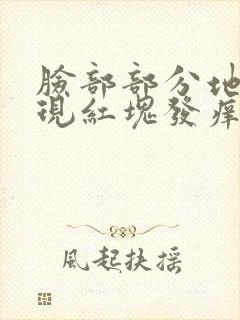 臉部部分地
現紅塊發痒
風起扶摇